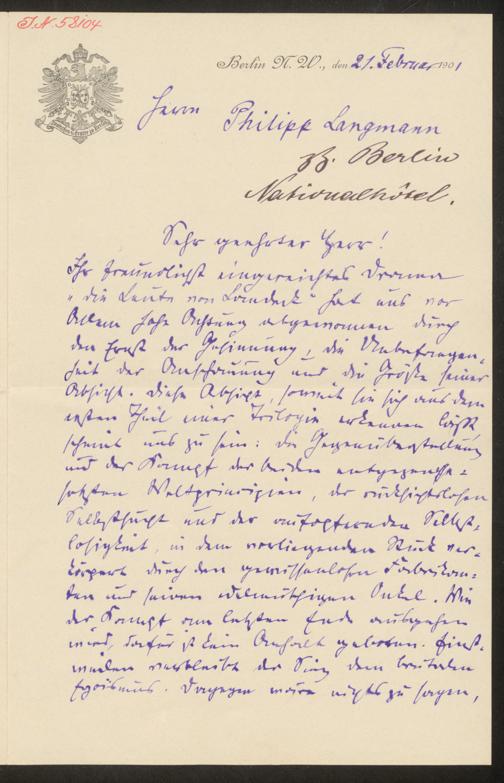 J.N. 58104
Berlin N.W., den 21. Februar 1901
Herrn Philipp Langmann
Berlin
Nationalhôtel.
Sehr geehrter Herr!
Ihr freundlichst eingereichtes Drama
„die Leute von Landeck“ hat uns vor
Allem hohe Achtung abgewonnen durch
den Ernst der Gesinnung, die Unbefangen-
heit der Anschauung und die Größe seiner
Absicht. Diese Absicht, soweit sie sich aus dem
ersten Theil einer Trilogie erkennen läßt
scheint uns zu sein: die Gegenüberstellung
und der Kampf der beiden entgegenge-
setzten Weltprincipien, der rücksichtslosen
Selbstsucht und der aufopfernden Selbst-
losigkeit, in dem vorliegenden Stück ver-
körpert durch den gewissenlosen Fabrikan-
ten und seinen edelmüthigen Onkel. Wie
der Kampf am letzten Ende ausgehen
wird, dafür ist kein Anhalt geboten. Einst-
weilen verbleibt der Sieg dem brutalen
Egoismus. Dagegen wäre nichts zu sagen,